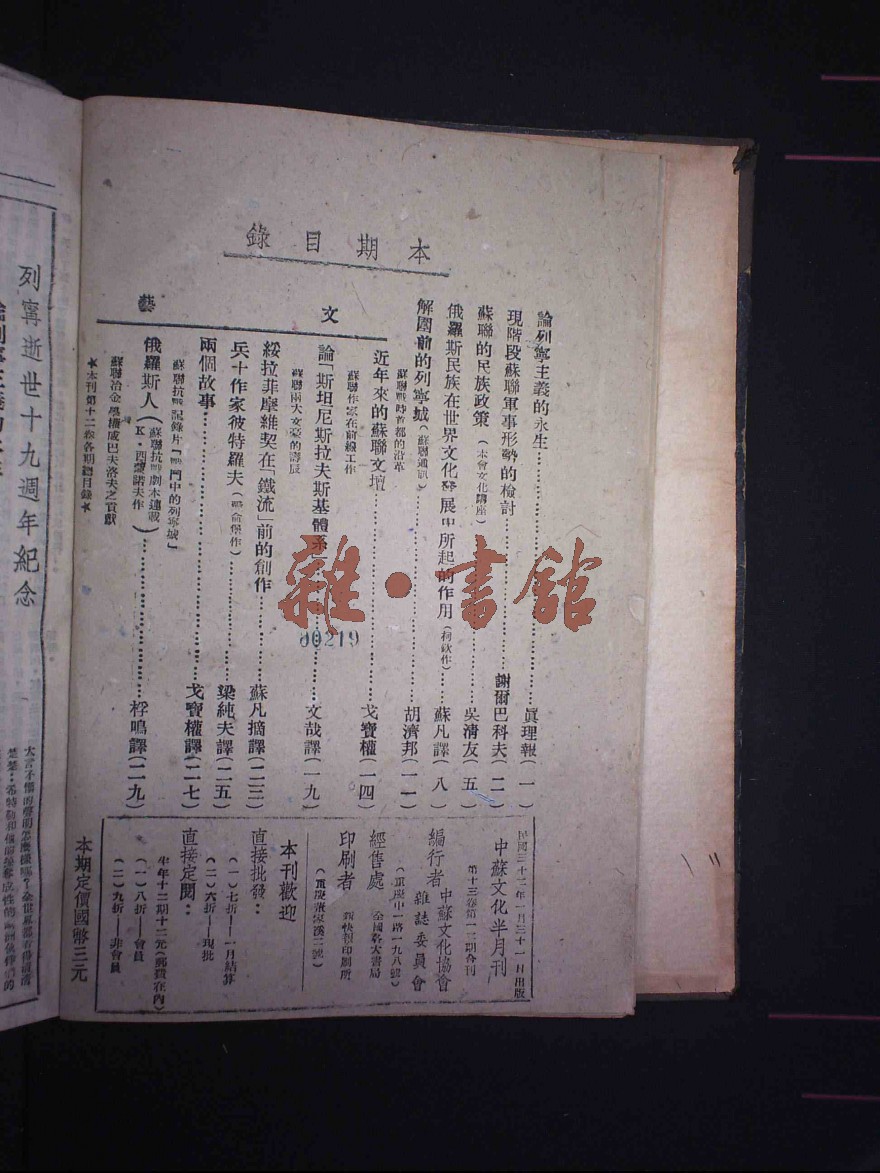 本期目錄
論列寧主義的永生……眞理報(一)
現階段蘇聯軍事形勢的檢討……謝爾巴科夫(二)
蘇聯的民族政策(本會文化講座)……吳清友(五)
俄羅斯民族在世界文化發展中所起的作用(柯欽作)……蘇凡譯(八)
解圍前的列寧城(蘇聯通訊)……胡濟邦(一一)
蘇聯戰時首都的沿革
文藝
近年來的蘇聯文壇……戈寶權(一四)
蘇聯作家在前線工作
論「斯坦尼斯拉夫斯基體系」……文哉譯(一九)
蘇聯兩大文豪的壽辰
綏拉菲摩維契在「鐵流」前的創作……蘇凡摘譯(二三)
兵士作家彼特羅夫(愛侖堡作)……梁純夫譯(二五)
兩個故事……戈寶權譯(二七)
蘇聯抗戰記錄片「戰鬥中的列寧城」
俄羅斯人(蘇聯抗戰劇本連載)(K·西蒙諾夫作)……桴鳴譯(二九)
蘇聯冶金學權威巴夫洛夫之貢獻
★本刊第十二卷各期總目錄★
民國三十二年一月三十一日出版
中蘇文化半月刊
第十三卷第一二期合刊
編行者 中蘇文化協會
雜誌委員會
(重慶中一路一九八號)
經售處 全國各大書局
印刷者 新快報印刷所
本刊歡迎
直接批發:
(一)七折——月結算
(二)六折——現批
直接定閱:
半年十二期十二元(郵費在內)
(一)八折——會員
(二)九折——非會員
本期定價國幣三元
雜·書館
00219
列寧逝世十九週年紀念